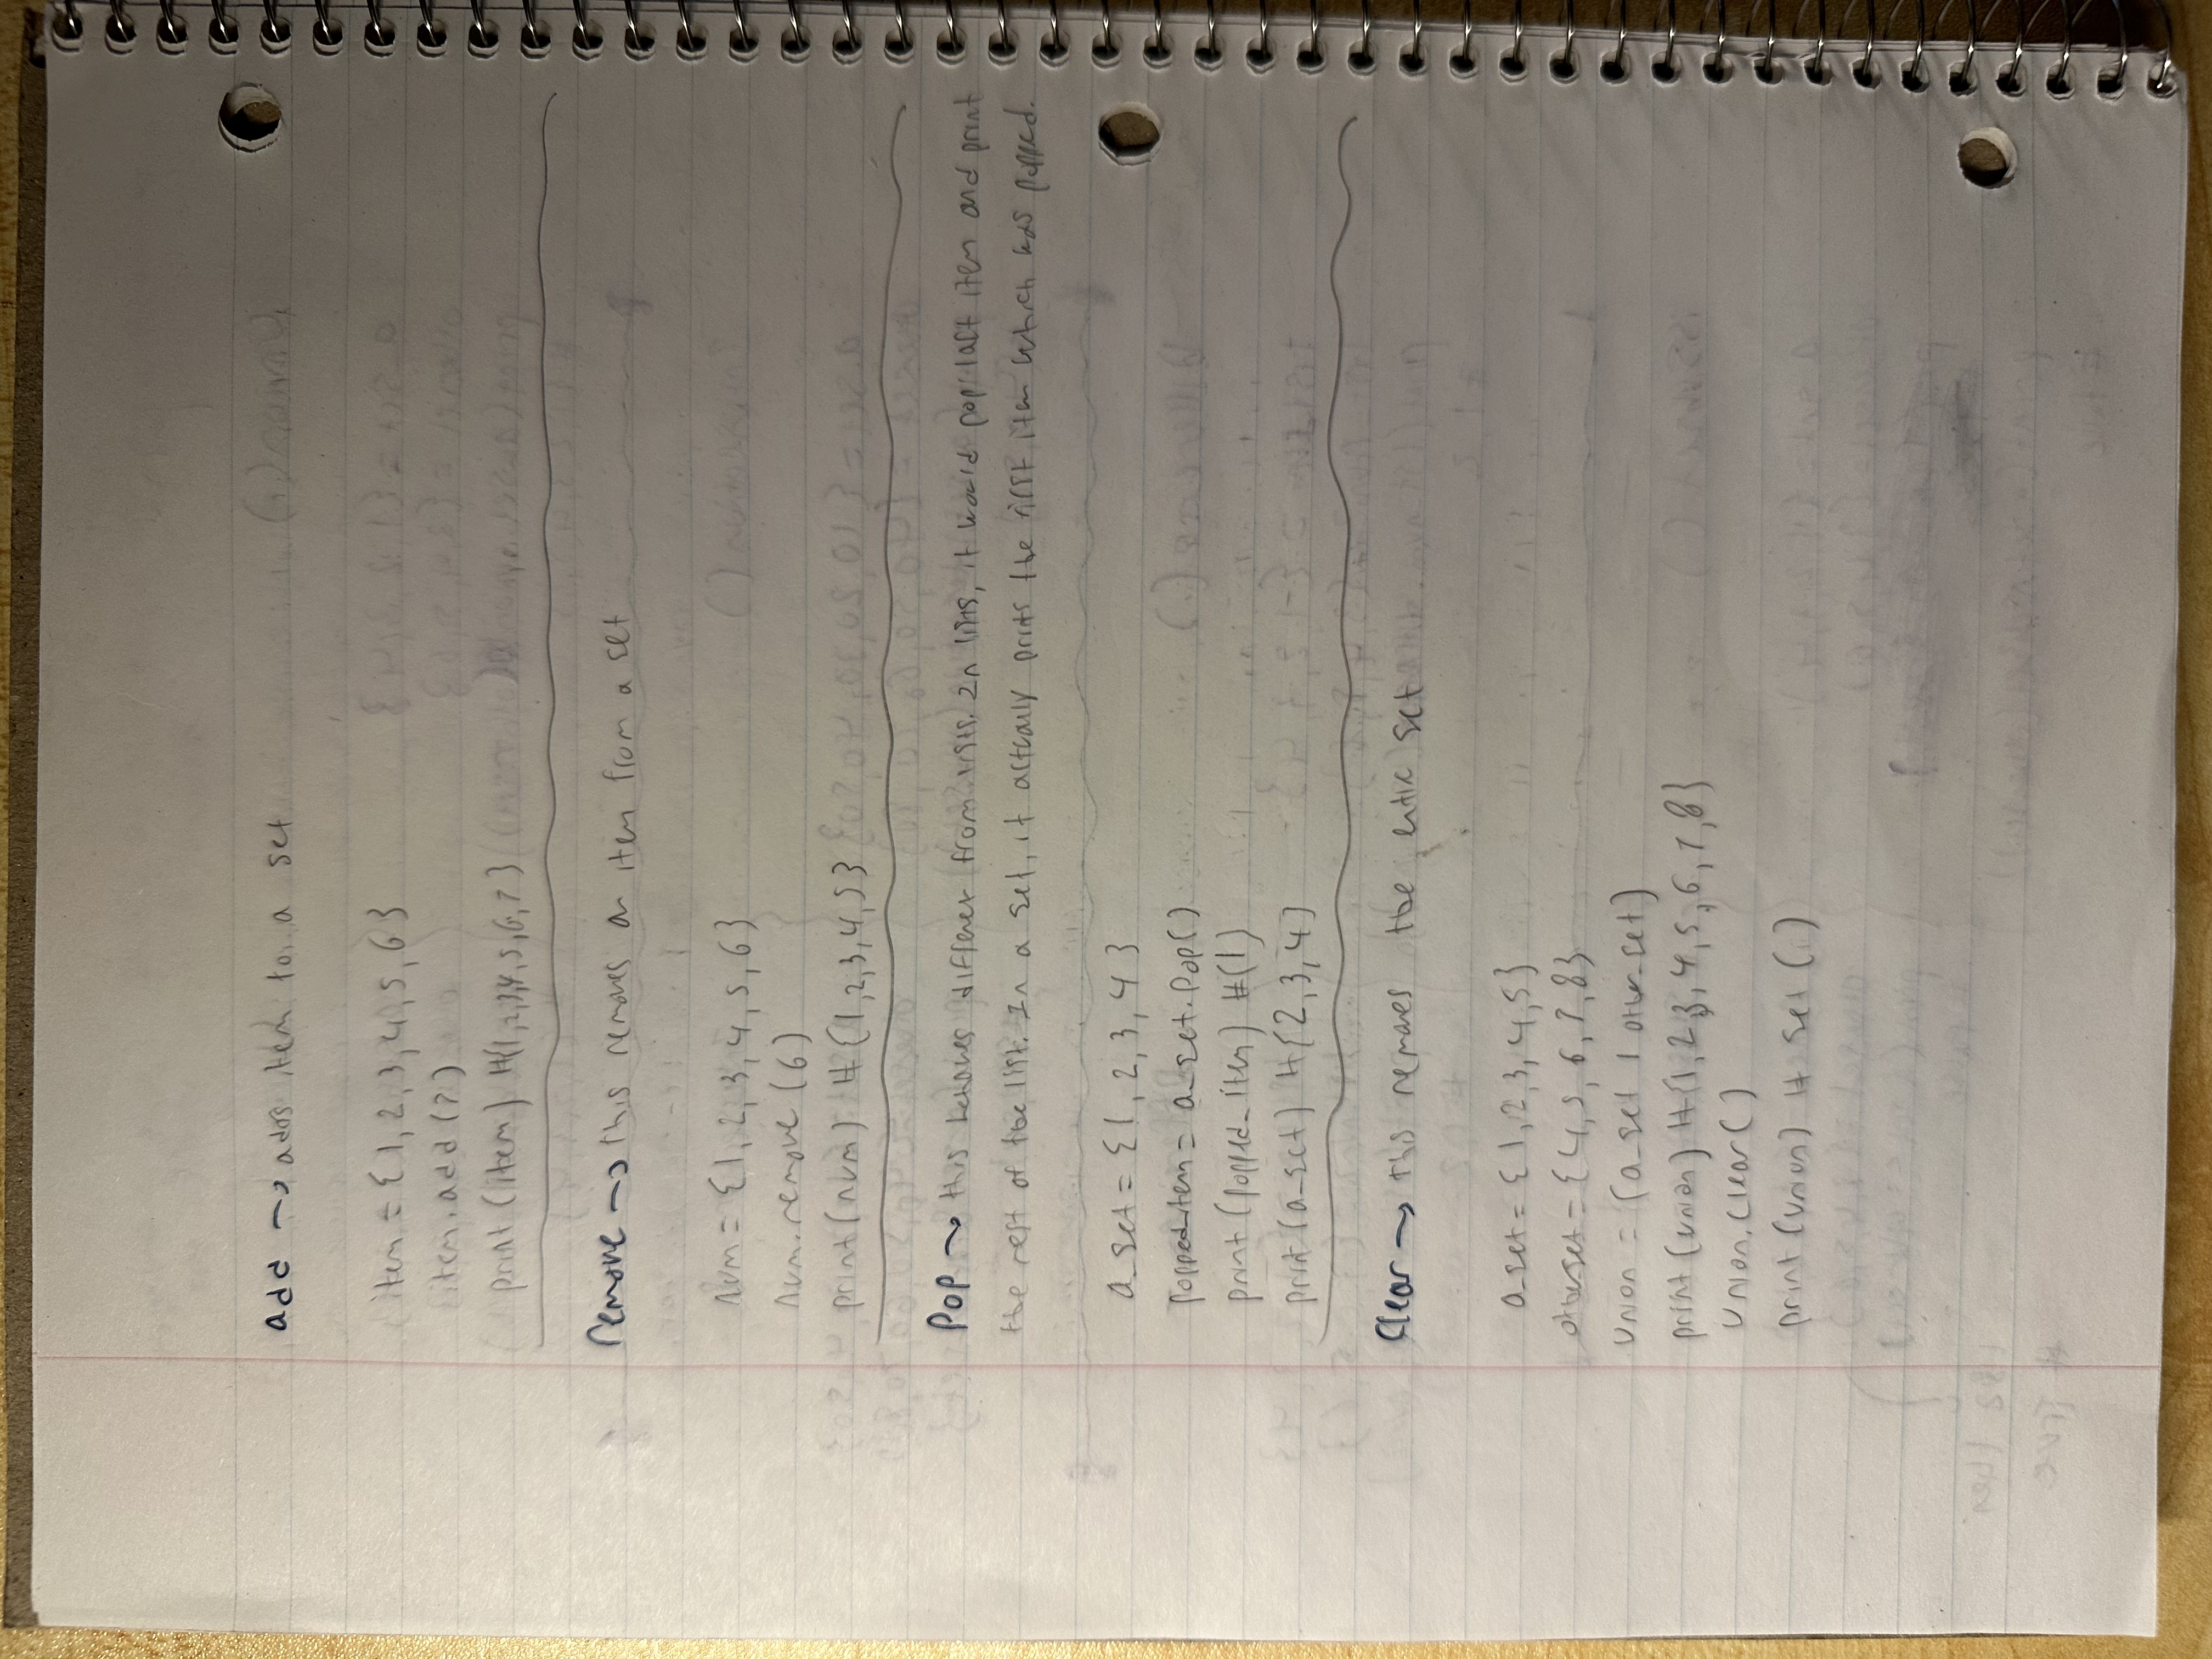 add → adds item to a set
item = {1, 2, 3, 4, 5, 6}
item.add(7)
print (item) #{1,2,3,4,5,6,7}
remove → this removes an item from a set
num = {1, 2, 3, 4, 5, 6}
num.remove (6)
print(num) #{1,2,3,4,5}
Pop → this behaves different from lists. In lists, it would pop last item and print
the rest of the list. In a set, it actually prints the first item which was popped.
a_set = {1, 2, 3, 4}
popped_item = a_set.pop()
print (popped_item) #(1)
print (a_set) #{2,3,4}
Clear → this removes the entire set
a_set = {1,2,3,4,5}
other_set = {4,5,6,7,8}
union = (a_set | other_set)
print (union) #{1,2,3,4,5,6,7,8}
union.clear()
print (union) # set()